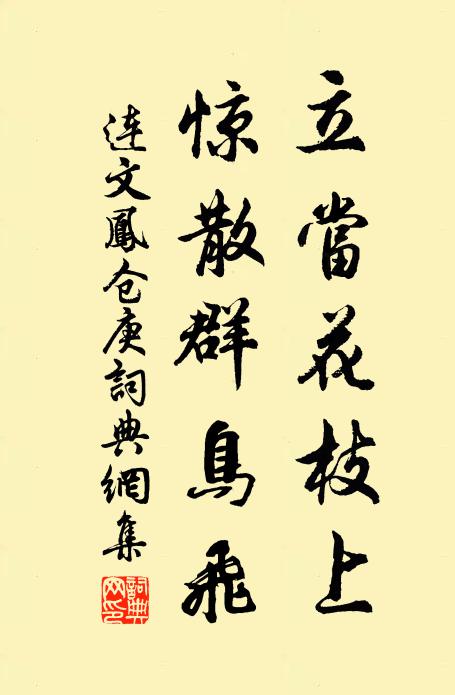 立當花枝上
惊散群鳥飛
連文鳳仓庚詞典網集
詞典网印